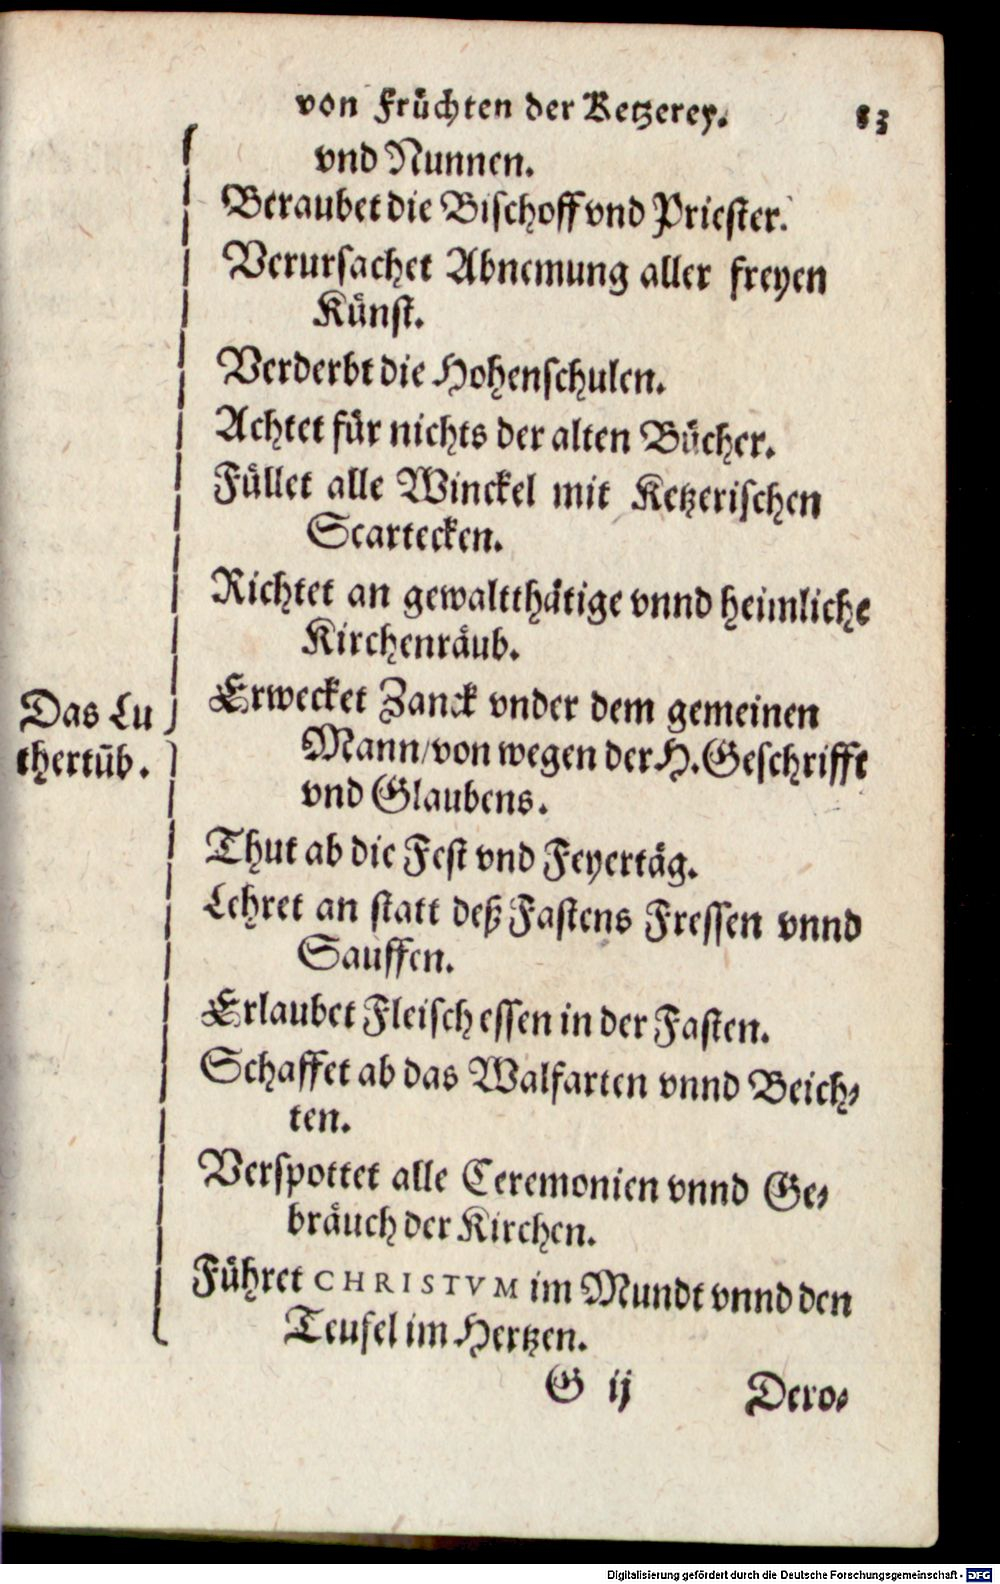 von Früchten der Ketzerey. 83
vnd Nunnen.
Beraubet die Bischoff vnd Priester.
Verursachet Abnemung aller freyen
Künst.
Verderbt die Hohenschulen.
Achtet für nichts der alten Bücher.
Füllet alle Winckel mit Ketzerischen
Scartecken.
Richtet an gewaltthätige vnnd heimliche
Kirchenräub.
Das Lu
thertūb.
Erwecket Zanck vnder dem gemeinen
Mann/von wegen der H. Geschrifft
vnd Glaubens.
Thut ab die Fest vnd Feyertäg.
Lehret an statt deß Fastens Fressen vnnd
Sauffen.
Erlaubet Fleisch essen in der Fasten.
Schaffet ab das Walfarten vnnd Beich⸗
ten.
Verspottet alle Ceremonien vnnd Ge⸗
bräuch der Kirchen.
Führet CHRISTVM im Mundt vnnd den
Teufel im Hertzen.
G ij Dero⸗
Digitalisierung gefördert durch die Deutsche Forschungsgemeinschaft - DFG